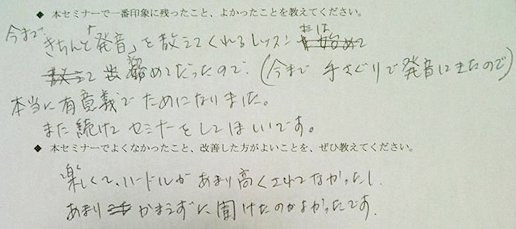 ◆ 本セミナーで一番印象に残ったこと、よかったことを教えてください。
今まで きちんと「発音」を教えてくれるレッスンは
初めてだったので、(今まで 手さぐりで発音してきたので)
本当に有意義でためになりました。
また続けてセミナーをしてほしいです。
◆ 本セミナーでよくなかったこと、改善した方がよいことを、ぜひ教えてください。
楽しくて、ハードルがあまり高くされてなかったし、
あまり かまえずに 聞けたのがよかったです。